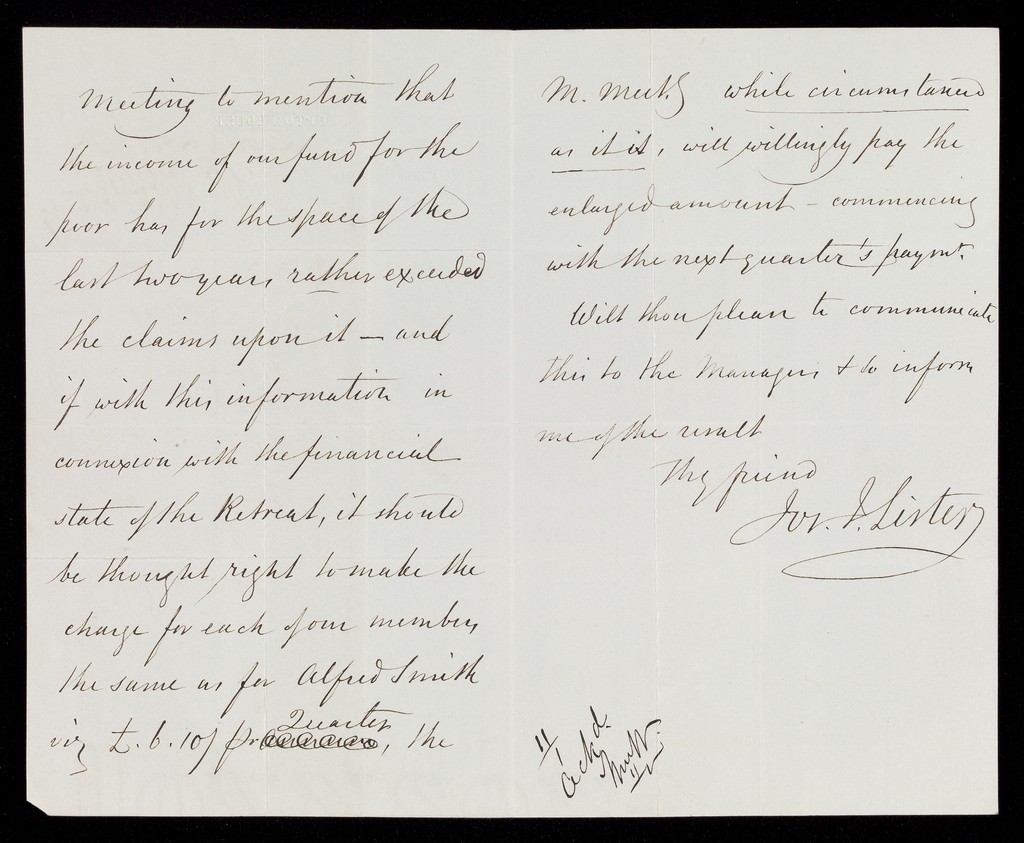 Meeting to mention that
the income of our fund for the
poor has for the space of the
last two years rather exceeded
the claims upon it — and
if with this information in
connexion with the financial
state of the Retreat, it should
be thought right to make the
charge for each of our members
the same as for Alfred Smith
viz £.6.10/ pr Quarter, the
M. Meetg while circumstanced
as it is, will willingly pay the
enlarged amount – commencing
with the next quarter's paymt.
Wilt thou please to communicate
this to the Managers & to inform
me of the result
Thy friend
Jos. J. Lister
11/1
Ackd.